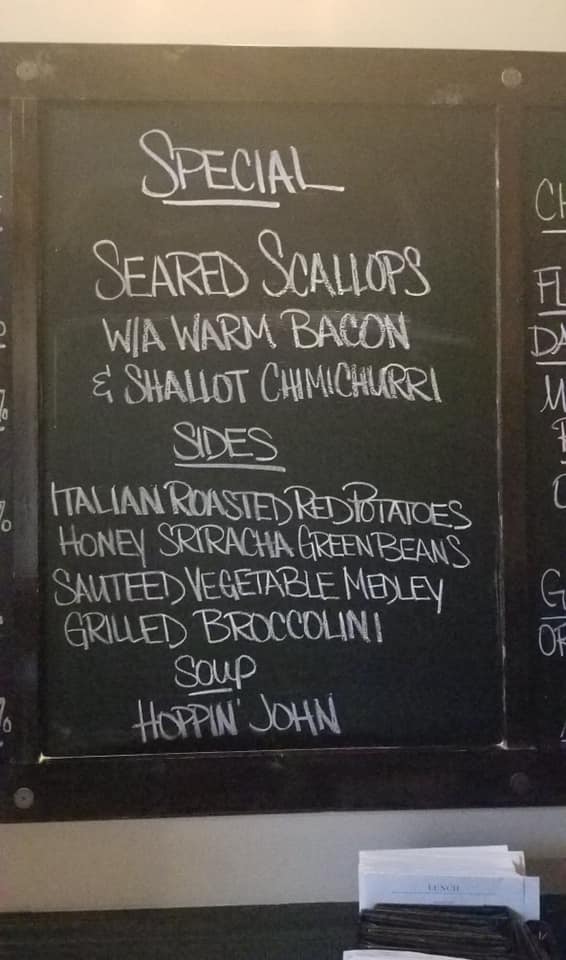 SPECIAL
SEARED SCALLOPS
W/A WARM BACON
& SHALLOT CHIMICHURRI
SIDES
ITALIAN ROASTED RED POTATOES
HONEY SRIRACHA GREEN BEANS
SAUTEED VEGETABLE MEDLEY
GRILLED BROCCOLINI
SOUP
HOPPIN' JOHN
CH
FL
DA
M
G
OR
LUNCH